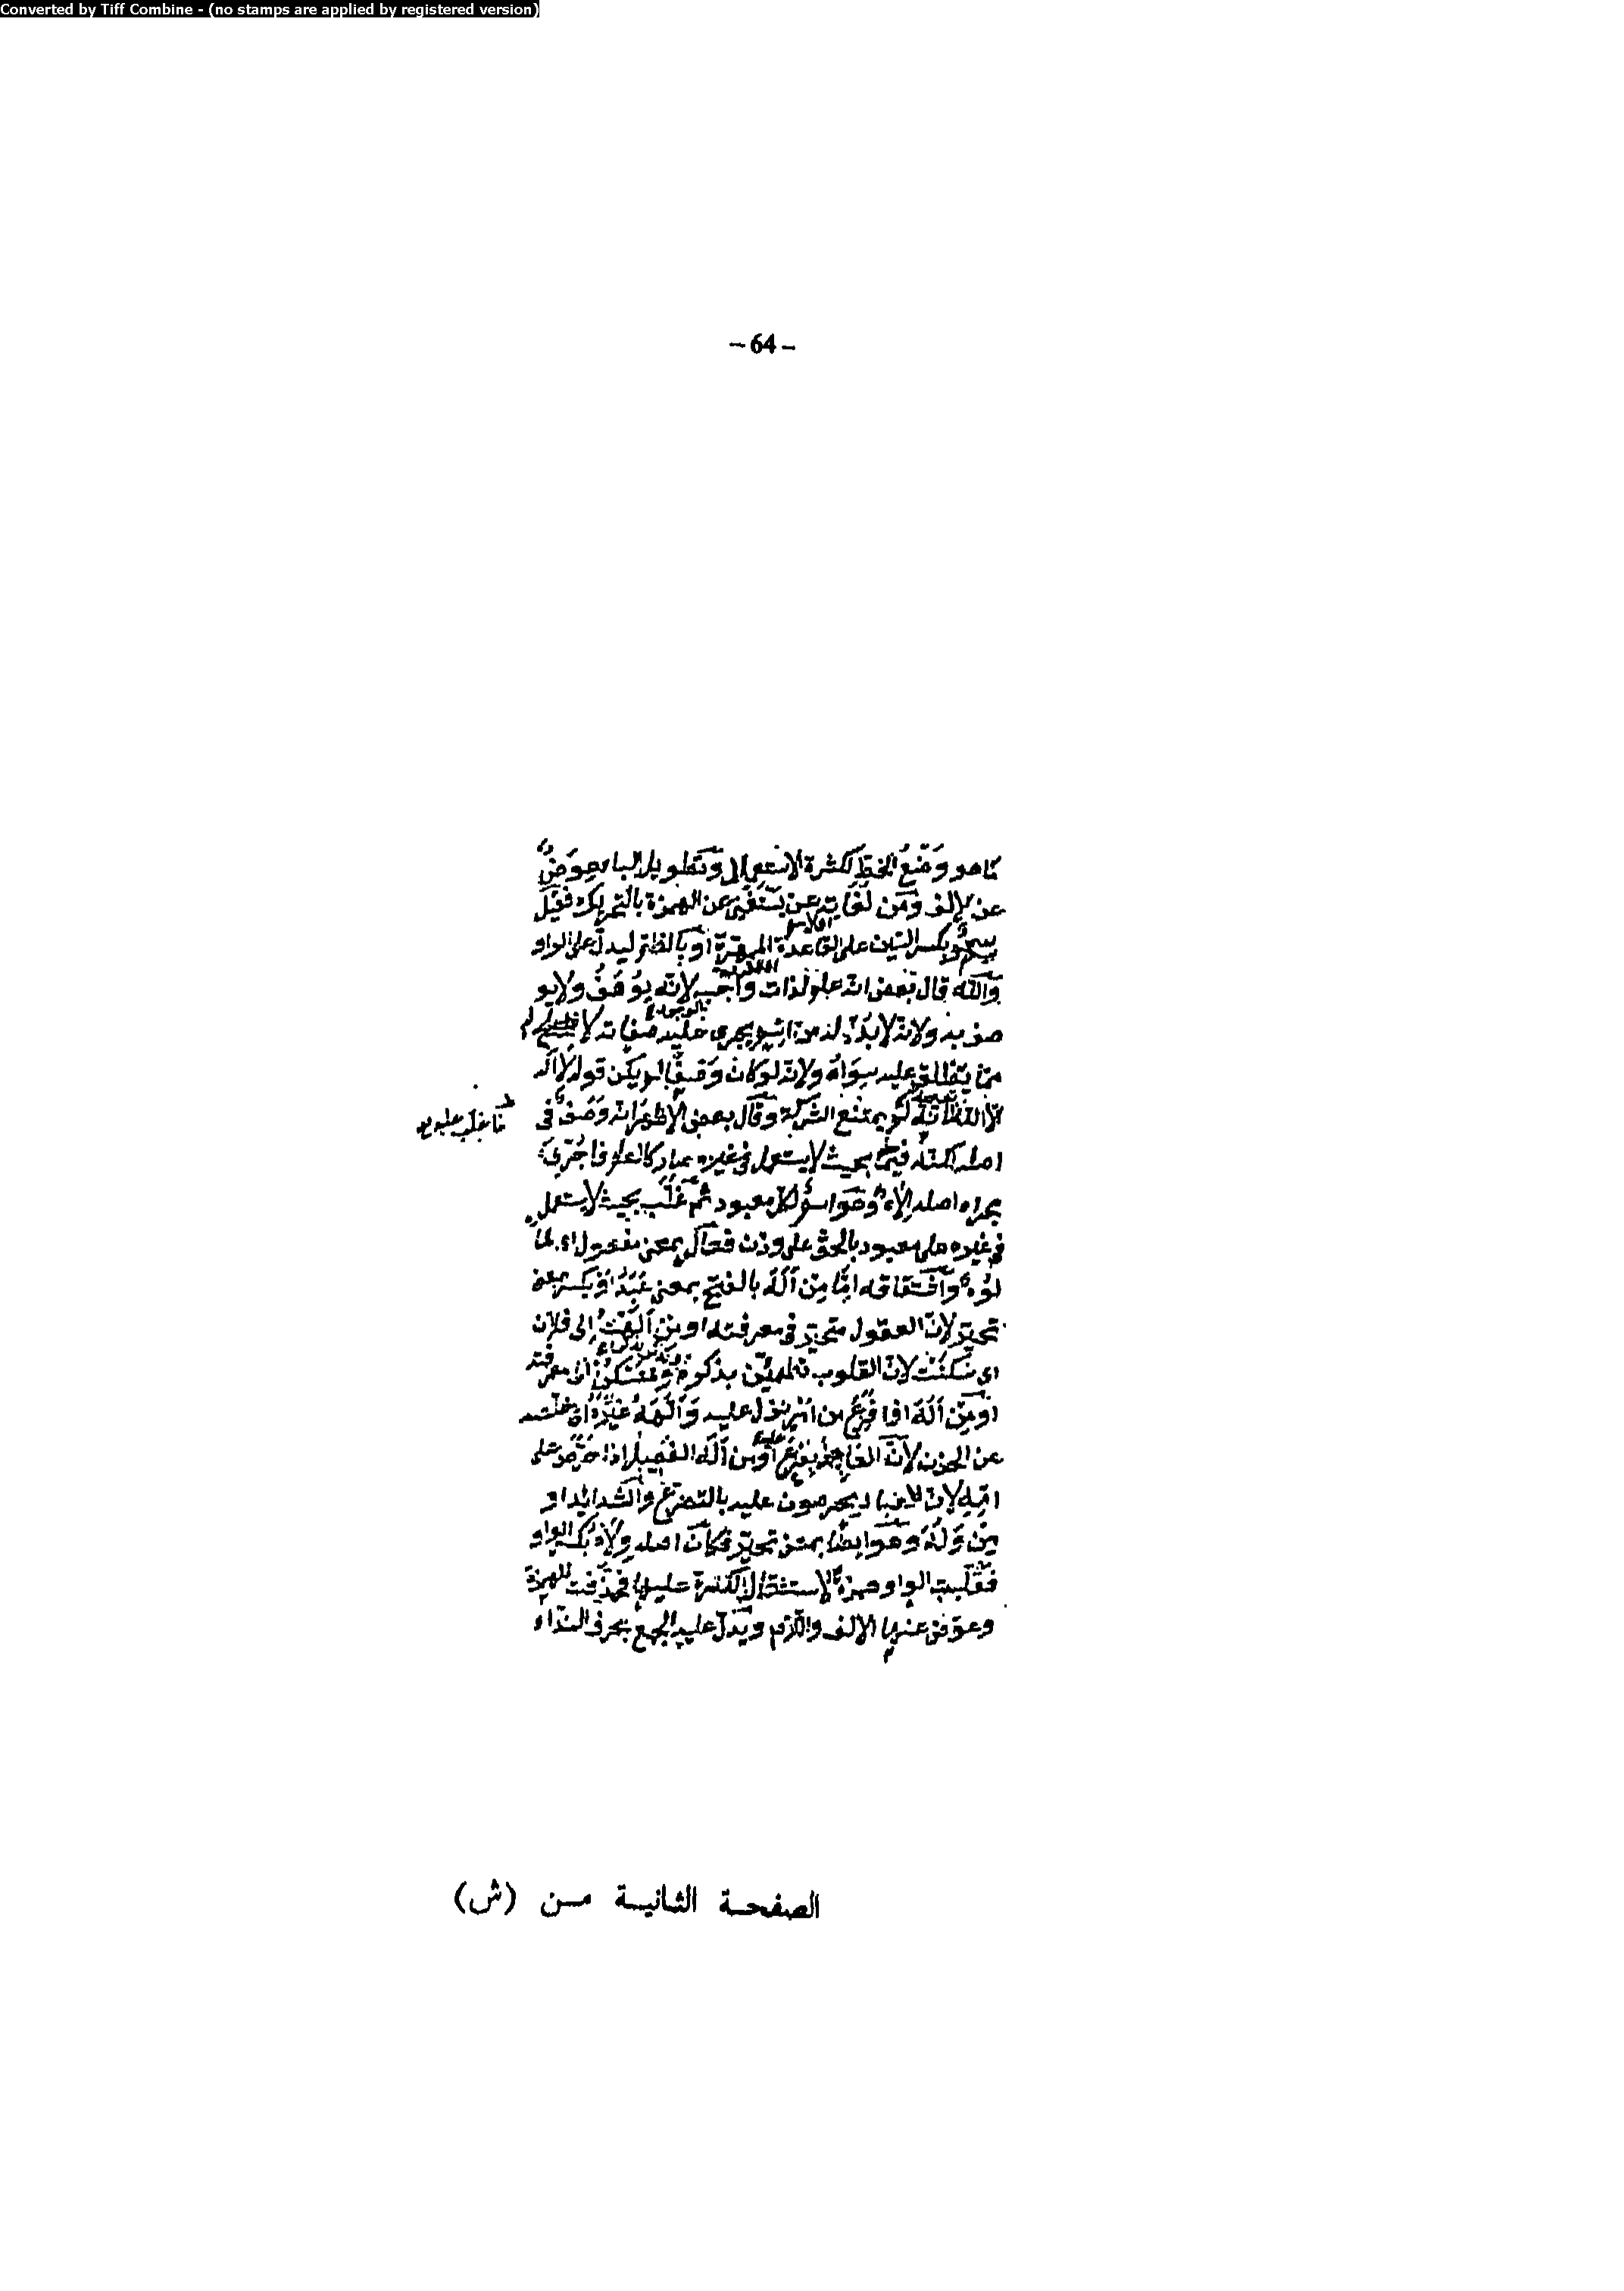 Converted by Tiff Combine - (no stamps are applied by registered version)
- 64 -
كما هو وضع الخط لكثرة الاستعمال وتطويل الباء عوض
عن الالف ومن لغاته عن يستغنى عن الهمزة بالتحريك فقيل
بكسر السين على القاعدة المقررة او بالضم ليدل على الواو
والله قال بعض انه علم لذات واجب لانه يوصف ولا يو
صف به ولانه لا بد له من اسم يجرى عليه صفاته لا
مما يطلق عليه سواه ولانه لو كان وصفا لم يكن قوله لا اله
الا الله لم يمتنع الشركة وقال بعض الاظهر انه وصف فى
لما غلب عليه
اصله لكنه بحيث لا يستعمل فى غيره صار كالعلم فاجرى
مجراه اصله الاه وهو اسم لكل معبود ثم غلب بحيث لا يستعمل
فى غيره على معبود بالحق على وزن فعال بمعنى مفعول اى مأ
لوه واشتقاقه اما من أله بالفتح بمعنى عبد او بكسر بمعنى
تحير لان العقول متحير فى معرفته او من ألهت الى فلان
اى سكنت لان القلوب تطمئن بذكره وتسكن الى معرفته
او من أله اذا فزع من امر نزل عليه وآلهه غيره اى خلصه
عن الحزن لان العاجز يفزع او من أله الفصيل اذا حرص على
امه لان الانبياء يحرصون عليه بالتضرع والشدائد او
من وله وهو ايضا بمعنى تحير فكان اصله ولاه بكسر الواو
فقلبت الواو همزة لاستثقال الكسرة عليها فحذفت الهمزة
وعوض عنها الالف واللام ويدل عليه الجمع بحرف النداء
الصفحة الثانية من (ش)